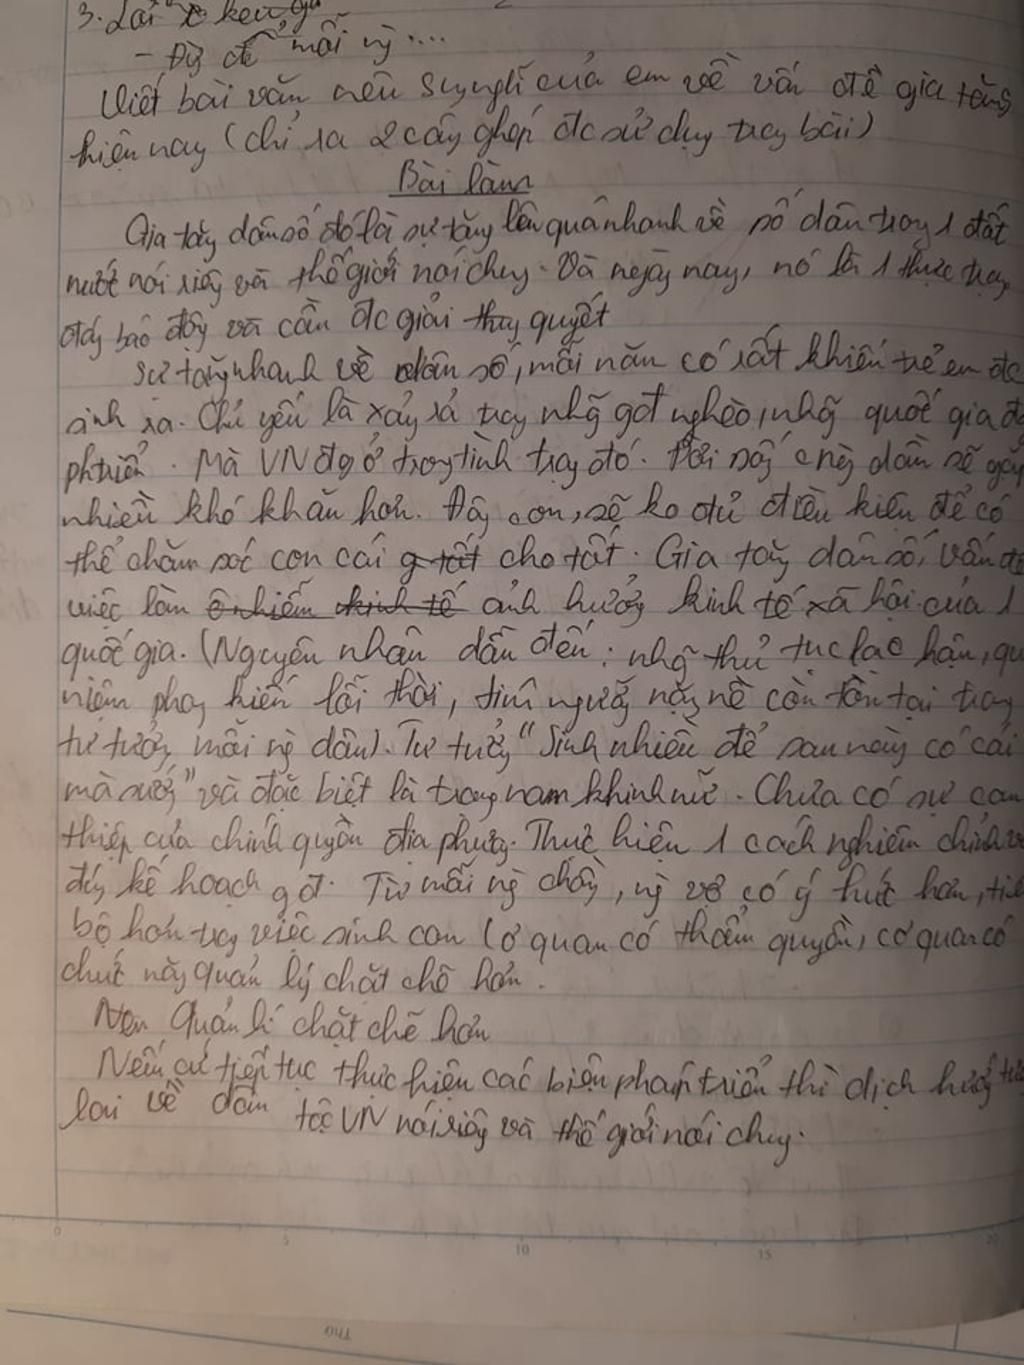 3. Lời kêu gọi
- Đề mỗi ng ....
Viết bài văn nêu suy nghĩ của em về vấn đề gia tăng
hiện nay (chỉ ra 2 câu ghép đc sử dụng trg bài)
Bài làm
Gia tăng dân số đó là sự tăng lên quá nhanh về số dân trong 1 đất
nước nói riêng và thế giới nói chung. Và ngày nay, nó là 1 thực trạng
đáng báo động và cần đc giải quyết
Sự tăng nhanh về dân số, mỗi năm có rất khiến trẻ em đc
sinh ra. Chủ yếu là xảy ra trg nhg gđ nghèo, nhg quốc gia đg
ptriển. Mà VN đg ở trong tình trạng đó. Đời sống dân sẽ gặp
nhiều khó khăn hơn. Đông con, sẽ ko đủ điều kiện để có
thể chăm sóc con cái cho tốt. Gia tăng dân số, vấn đề
việc làm ảnh hưởng kinh tế xã hội của 1
quốc gia. (Nguyên nhân dẫn đến: nhg thủ tục lạc hậu, qu
niệm phong kiến lỗi thời, tín ngưỡng nặng nề còn tồn tại trong
tư tưởng mỗi ng dân). Tư tưởng "Sinh nhiều để sau này có cái
mà sướng" và đặc biệt là trọng nam khinh nữ. Chưa có sự can
thiệp của chính quyền địa phương. Thực hiện 1 cách nghiêm chỉnh và
đúng kế hoạch gđ. Từ mỗi ng chồng, ng vợ có ý thức hơn, tiến
bộ hơn trg việc sinh con. Cơ quan có thẩm quyền, cơ quan có
chức năng quản lý chặt chẽ hơn.
Nên Quản lí chặt chẽ hơn
Nếu cứ tiếp tục thực hiện các biện pháp triển thì dịch hướng
lai về dân tộc VN nói riêng và thế giới nói chung.
0 5 10 15 20